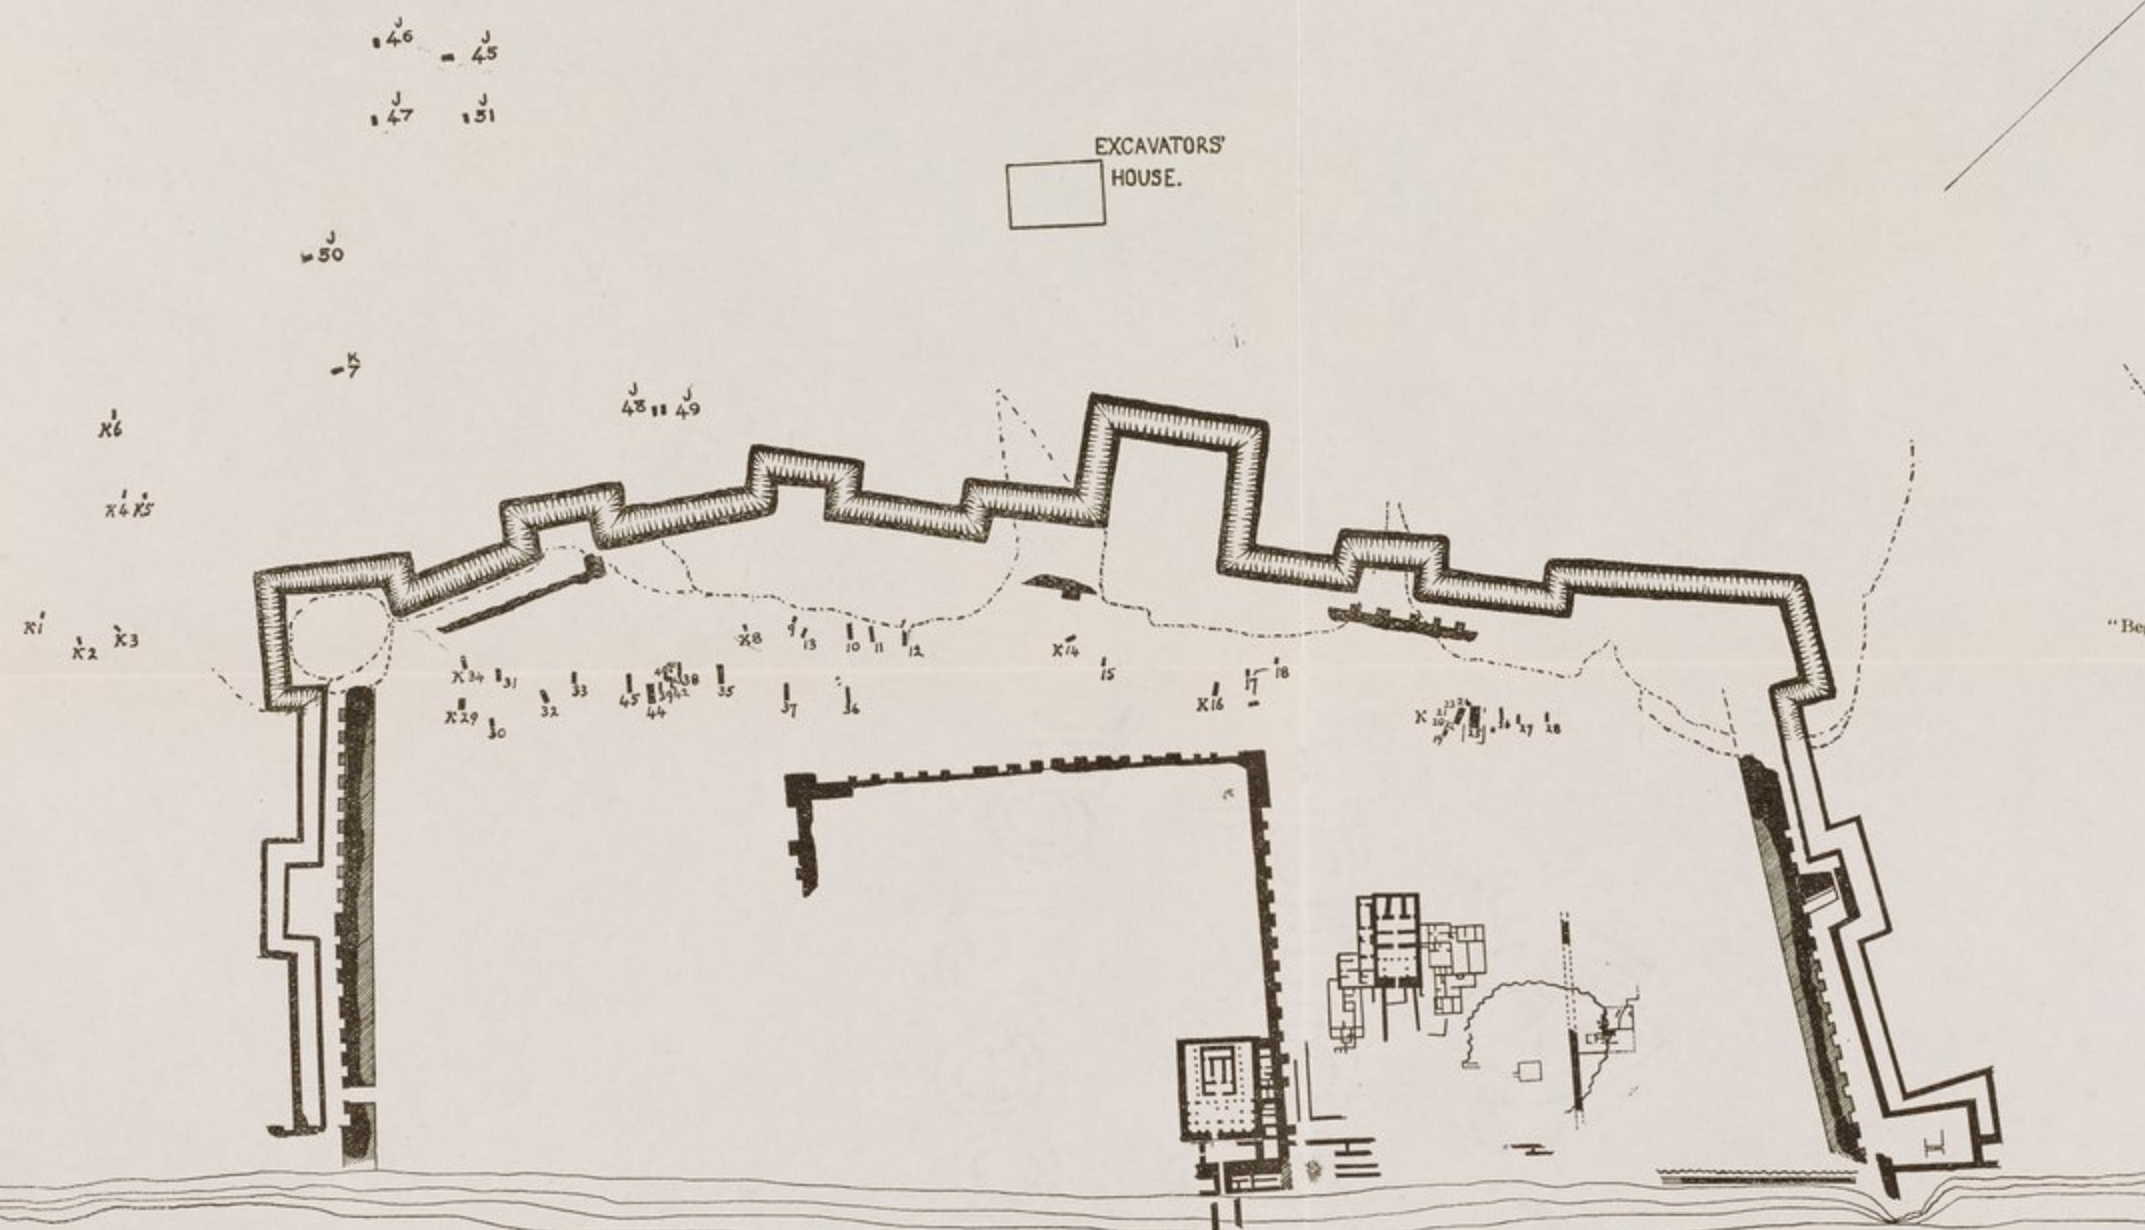 J
46
J
45
J
47
J
51
EXCAVATORS'
HOUSE.
J
50
K
7
J
48
J
49
K6
K4 K5
K1
K2
K3
K8
9
13
10
11
12
K14
15
K16
17
18
K34
31
33
45
44
39
42
38
35
37
36
32
K29
30
K
20
21
22
19
27
28
"Be